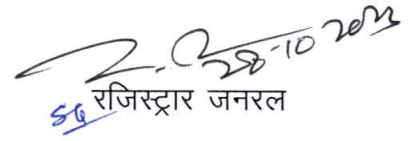 28-10 2023
रजिस्ट्रार जनरल